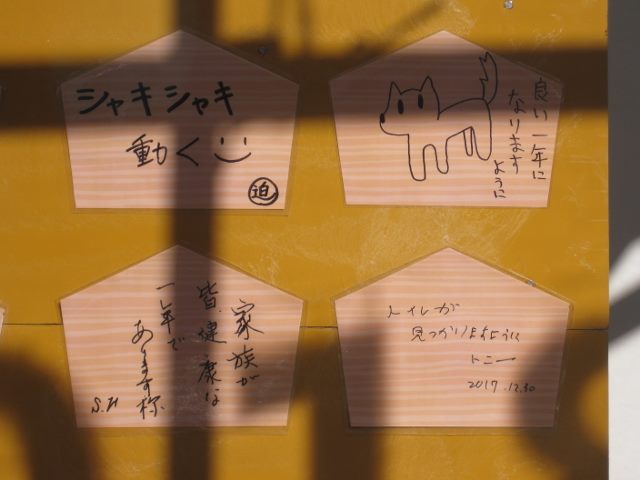 シャキシャキ
動く
迫
良い一年に
なります
ように
家族が
皆、健康な
一年で
あります様
S.H
トイレが
見つかりますように
トニー
2017.12.30